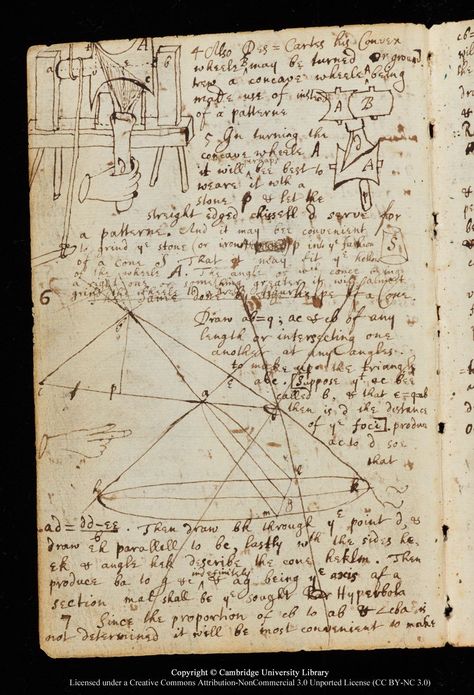 4 Also Des=Cartes his Convex
wheele B may be turned or ground
trew a concave wheele A being
made use of instead
of a patterne
5 In turning the
concave wheele A
it will perhaps bee best to
weare it with a
stone p & let the
streight edged chissell d serve for
a patterne. And it may bee convenient
to grind ye stone (or iron) p into ye fashion
of a cone. That it may fit ye hollow
of the wheele A. The angle of wch cone being
a right one or something greater it will
6
Draw ab=q; ac & cb of any
length or intersecting one
another at any angles
to make up the triangle
abc. [Suppose yt ac bee
called b, & that e=qab
then is d the distance
of ye foci]. produce
ac to d soe
that
ad = dd-ee/b. Then draw bk through ye point d &
draw ek parallell to be, lastly with the sides he
ek & angle hek describe the cone heklm. Then
produce ba to g & ag indefinitely being ye axis of a
section mal shall be ye sought Hyperbola
7 Since the proportion of cb to ab & <cba is
not determined it will be most convenient to make
Copyright © Cambridge University Library
Licensed under a Creative Commons Attribution-NonCommercial 3.0 Unported License (CC BY-NC 3.0)